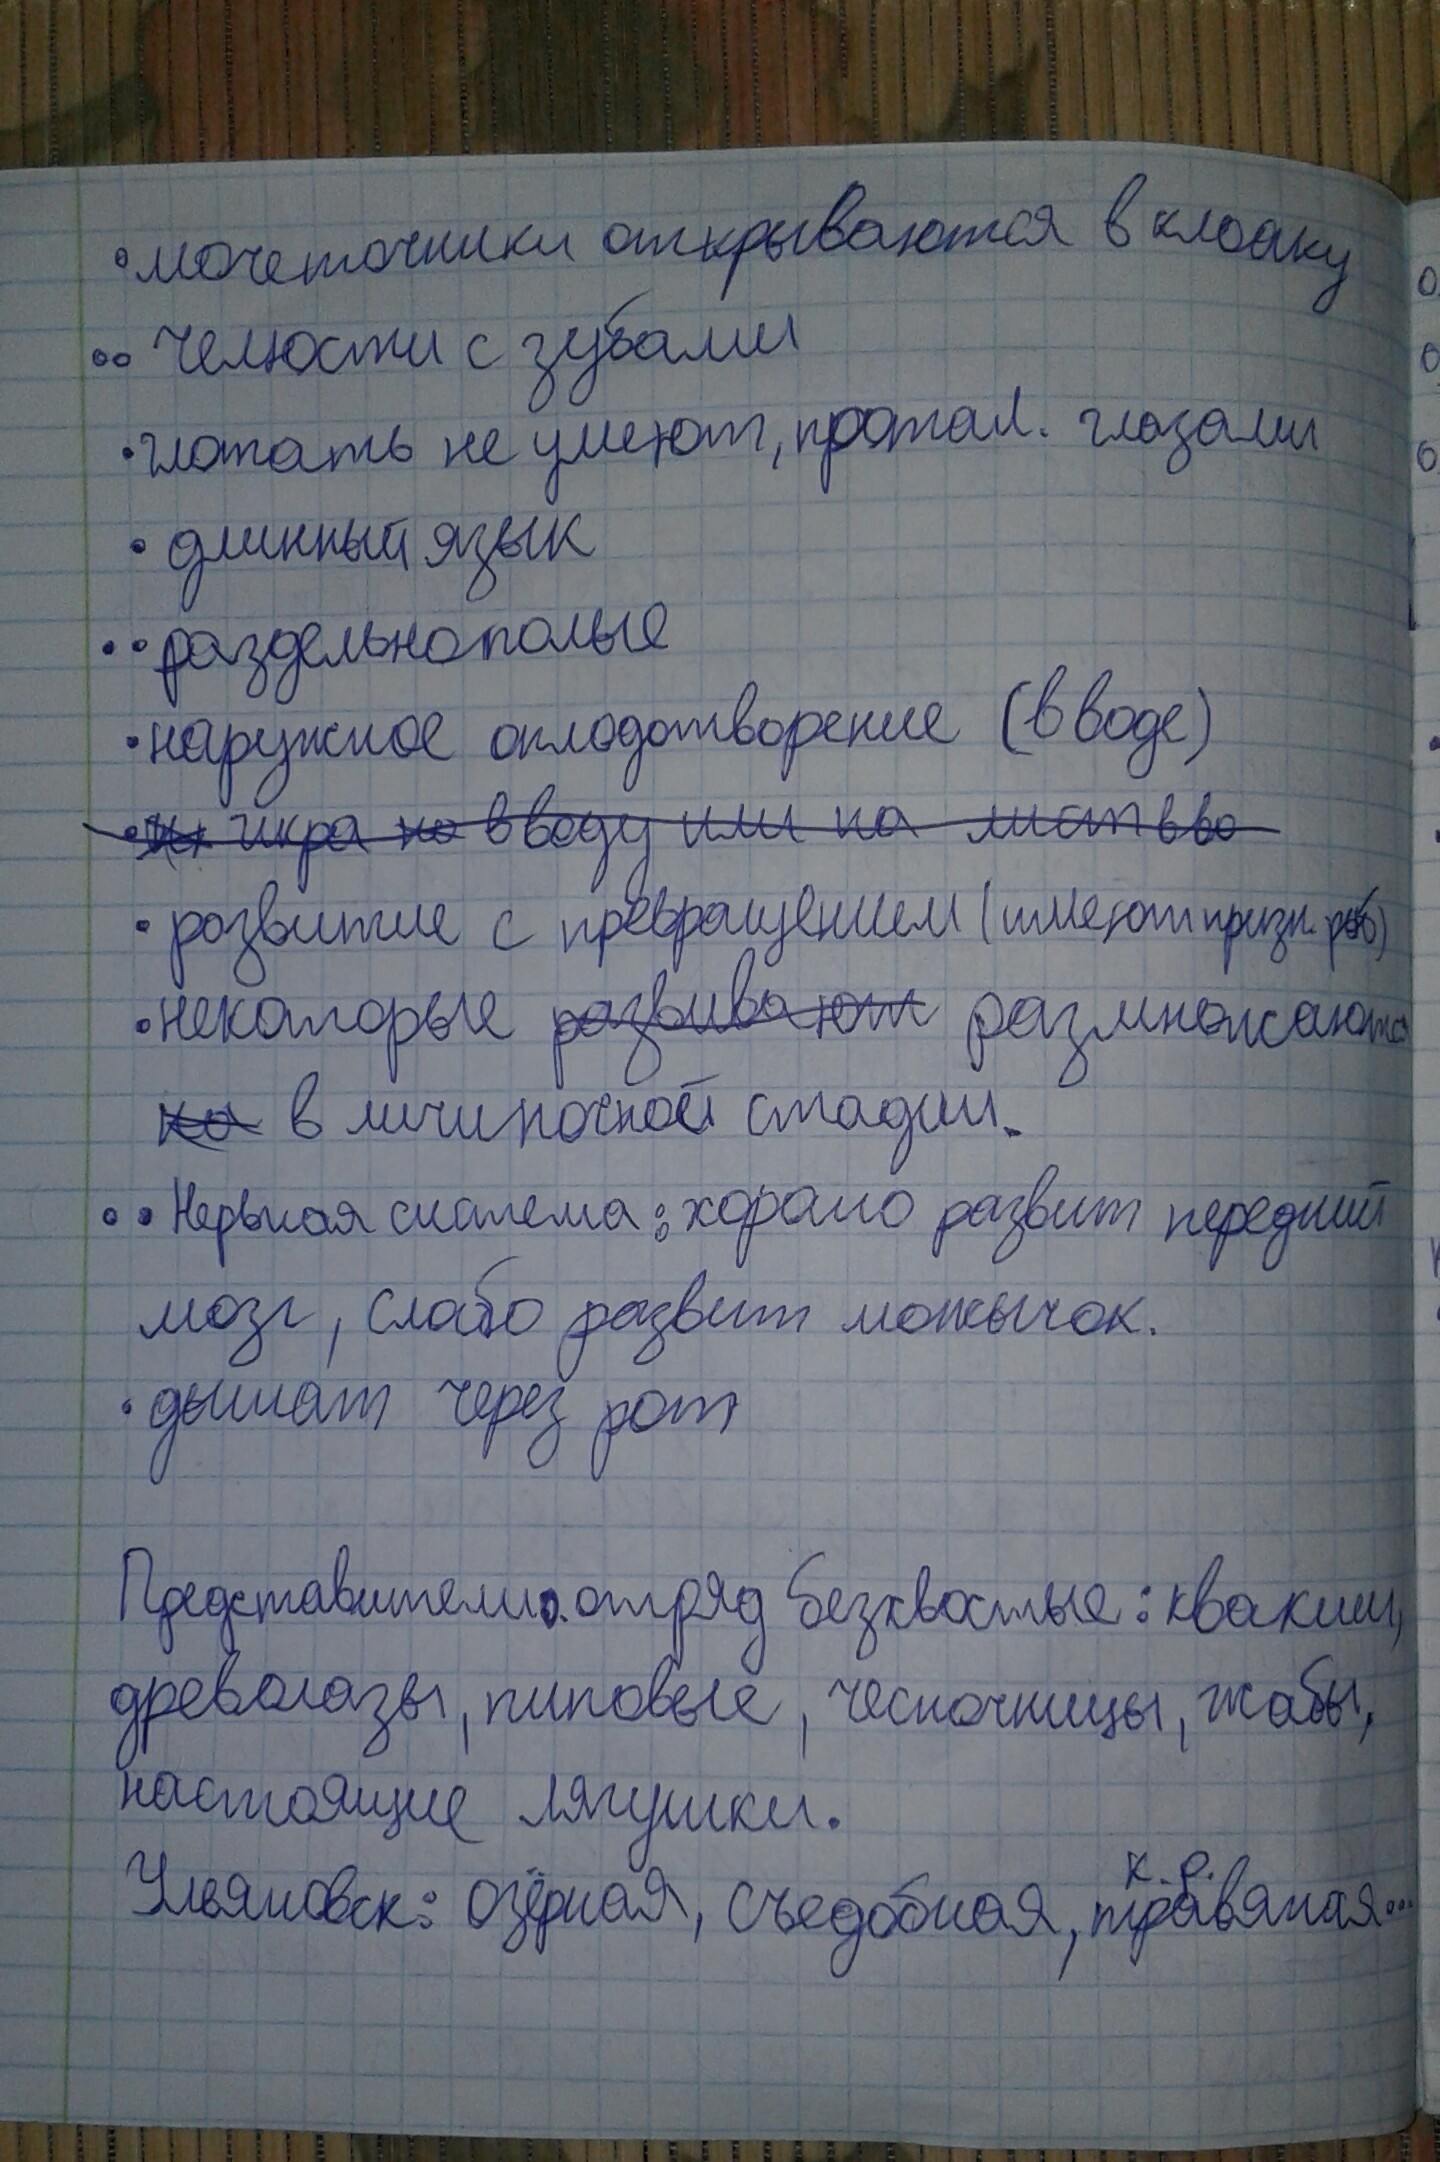 • мочеточники открываются в клоаку
•• челюсти с зубами
• глотать не умеют, протал. глазами
• длинный язык
•• раздельнополые
• наружное оплодотворение (в воде)
• икра на в воду или на листьво
• развитие с превращением (имеют призн. рыб)
• некоторые развивают размножаются
на в личиночной стадии.
•• Нервная система: хорошо развит передний
мозг, слабо развит мозжычок.
• дышат через рот
Представители. отряд безхвостые: квакши,
древолазы, пиповые, чесночницы, жабы,
настоящие лягушки.
к. р.
Ульяновск: озёрная, съедобная, травяная...